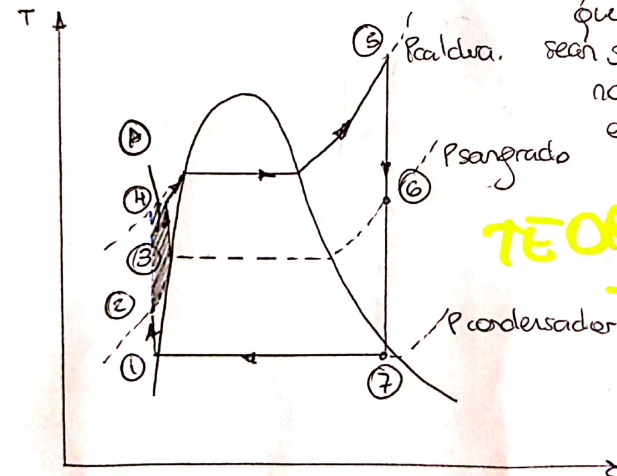 T
que
5
Pcaldera.
sean s
no
A
e
Psangrado
4
6
TEO
3
2
Pcondensador
1
7